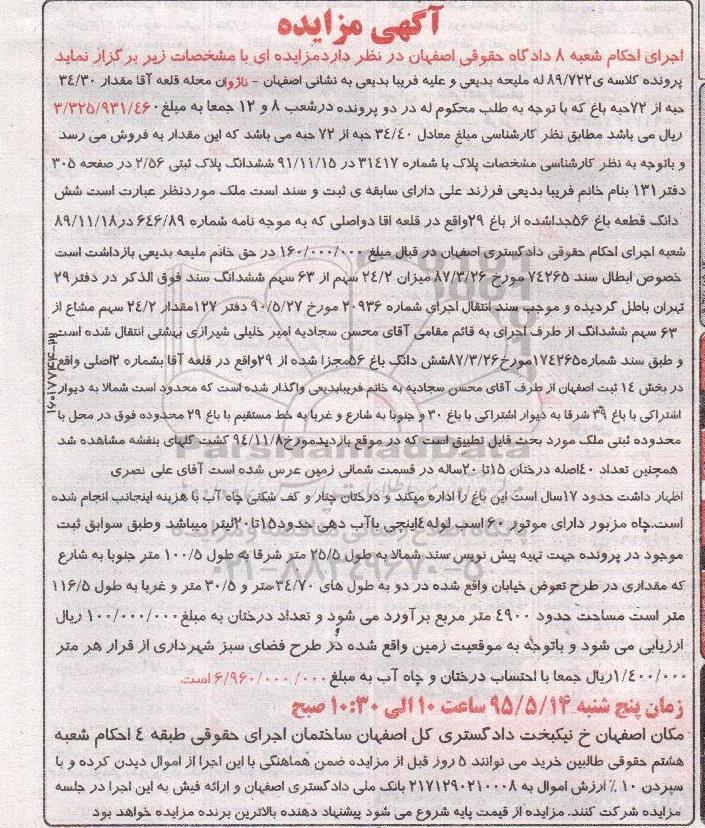 آگهی مزایده
اجرای احکام شعبه ۸ دادگاه حقوقی اصفهان در نظر دارد مزایده ای با مشخصات زیر برگزار نماید
پرونده کلاسه ی ۸۹/۷۲۲ له ملیحه بدیعی و علیه فریبا بدیعی به نشانی اصفهان - ناژوان محله قلعه آقا مقدار ۳۴/۳۰
حبه از ۷۲حبه باغ که با توجه به طلب محکوم له در دو پرونده درشعب ۸ و ۱۲ جمعا به مبلغ ۳/۳۲۵/۹۳۱/۴۶۰
ریال می باشد مطابق نظر کارشناسی مبلغ معادل ۳۴/۴۰ حبه از ۷۲ حبه می باشد که این مقدار به فروش می رسد
و باتوجه به نظر کارشناسی مشخصات پلاک با شماره ۳۱۴۱۷ در ۹۱/۱۱/۱۵ ششدانگ پلاک ثبتی ۲/۵۶ در صفحه ۳۰۵
دفتر ۱۳۱ بنام خانم فریبا بدیعی فرزند علی دارای سابقه ی ثبت و سند است ملک موردنظر عبارت است شش
دانگ قطعه باغ ۵۶جداشده از باغ ۲۹واقع در قلعه اقا دواصلی که به موجه نامه شماره ۶۴۶/۸۹ در۸۹/۱۱/۱۸
شعبه اجرای احکام حقوقی دادگستری اصفهان در قبال مبلغ ۱۶۰/۰۰۰/۰۰۰ در حق خانم ملیعه بدیعی بازداشت است
خصوص ابطال سند ۷۴۲۶۵ مورخ ۸۷/۳/۲۶ میزان ۲۴/۲ سهم از ۶۳ سهم ششدانگ سند فوق الذکر در دفتر ۲۹
تهران باطل گردیده و موجب سند انتقال اجرای شماره ۲۰۹۳۶ مورخ ۹۰/۵/۲۷ دفتر ۱۲۷مقدار ۲۴/۲ سهم مشاع از
۶۳ سهم ششدانگ از طرف اجرای به قائم مقامی آقای محسن سجادیه امیر خلیلی شیرازی بهشتی انتقال شده است
و طبق سند شماره۱۷۴۲۶۵مورخ۸۷/۳/۲۶شش دانگ باغ ۵۶مجزا شده از ۲۹واقع در قلعه آقا بشماره ۲اصلی واقع
در بخش ۱۴ ثبت اصفهان از طرف آقای محسن سجادیه به خانم فریبابدیعی واگذار شده است که محدود است شمالا به دیوار
اشتراکی با باغ ۳۹ شرقا به دیوار اشتراکی با باغ ۳۰ و جنوبا به شارع و غربا به خط مستقیم با باغ ۲۹ محدوده فوق در محل با
محدوده ثبتی ملک مورد بحث قابل تطبیق است که در موقع بازدیدمورخ۹۴/۱۱/۸ کشت گلهای بنفشه مشاهده شد
همچنین تعداد ۴۰اصله درختان ۱۵تا ۲۰ساله در قسمت شمالی زمین عرس شده است آقای علی نصری
اظهار داشت حدود ۱۷سال است این باغ را اداره میکند و درختان چنار و کف شکنی چاه آب با هزینه اینجانب انجام شده
است.چاه مزبور دارای موتور ۶۰ اسب لوله ۴اینچی باآب دهی حدود۱۵تا۲۰لیتر میباشد وطبق سوابق ثبت
موجود در پرونده جهت تهیه پیش نویس سند شمالا به طول ۲۵/۵ متر شرقا به طول ۱۰۰/۵ متر جنوبا به شارع
که مقداری در طرح تعوض خیابان واقع شده در دو به طول های ۳۴/۷۰متر و ۳۰/۵ متر و غربا به طول ۱۱۶/۵
متر است مساحت حدود ۴۹۰۰ متر مربع برآورد می شود و تعداد درختان به مبلغ ۱۰۰/۰۰۰/۰۰۰ ریال
ارزیابی می شود و باتوجه به موقعیت زمین واقع شده در طرح فضای سبز شهرداری از قرار هر متر
۱/۴۰۰/۰۰۰ریال جمعا با احتساب درختان و چاه آب به مبلغ ۶/۹۶۰/۰۰۰/۰۰۰ است
زمان پنج شنبه ۹۵/۵/۱۴ ساعت ۱۰ الی ۱۰:۳۰ صبح
مکان اصفهان خ نیکبخت دادگستری کل اصفهان ساختمان اجرای حقوقی طبقه ٤ احکام شعبه
هشتم حقوقی طالبین خرید می توانند ۵ روز قبل از مزایده ضمن هماهنگی با این اجرا از اموال دیدن کرده و با
سپردن ۱۰٪ ارزش اموال به ۲۱۷۱۲۹۰۲۱۰۰۰۸ بانک ملی دادگستری اصفهان و ارائه فیش به این اجرا در جلسه
مزایده شرکت کنند. مزایده از قیمت پایه شروع می شود پیشنهاد دهنده بالاترین برنده مزایده خواهد بود
ParsNamadData
۰۲۱-۸۸۳۴۹۶۷۰-۵